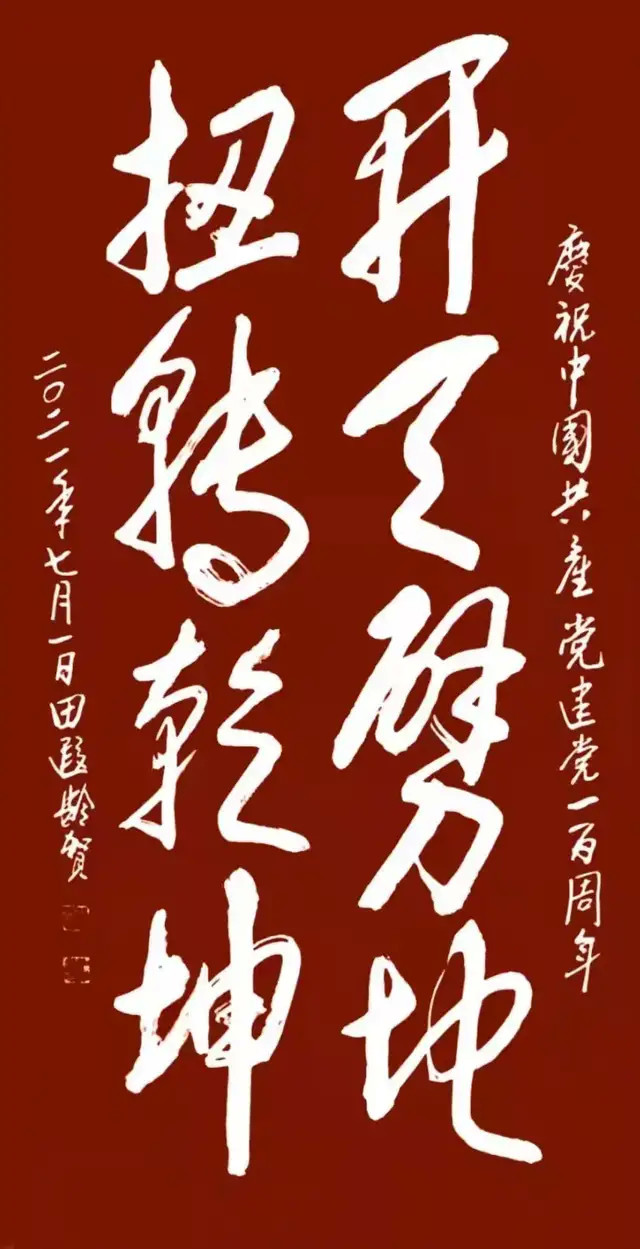 慶祝中國共産党建党一百周年
开天劈地
扭轉乾坤
二〇二一年七月一日田遐龄贺